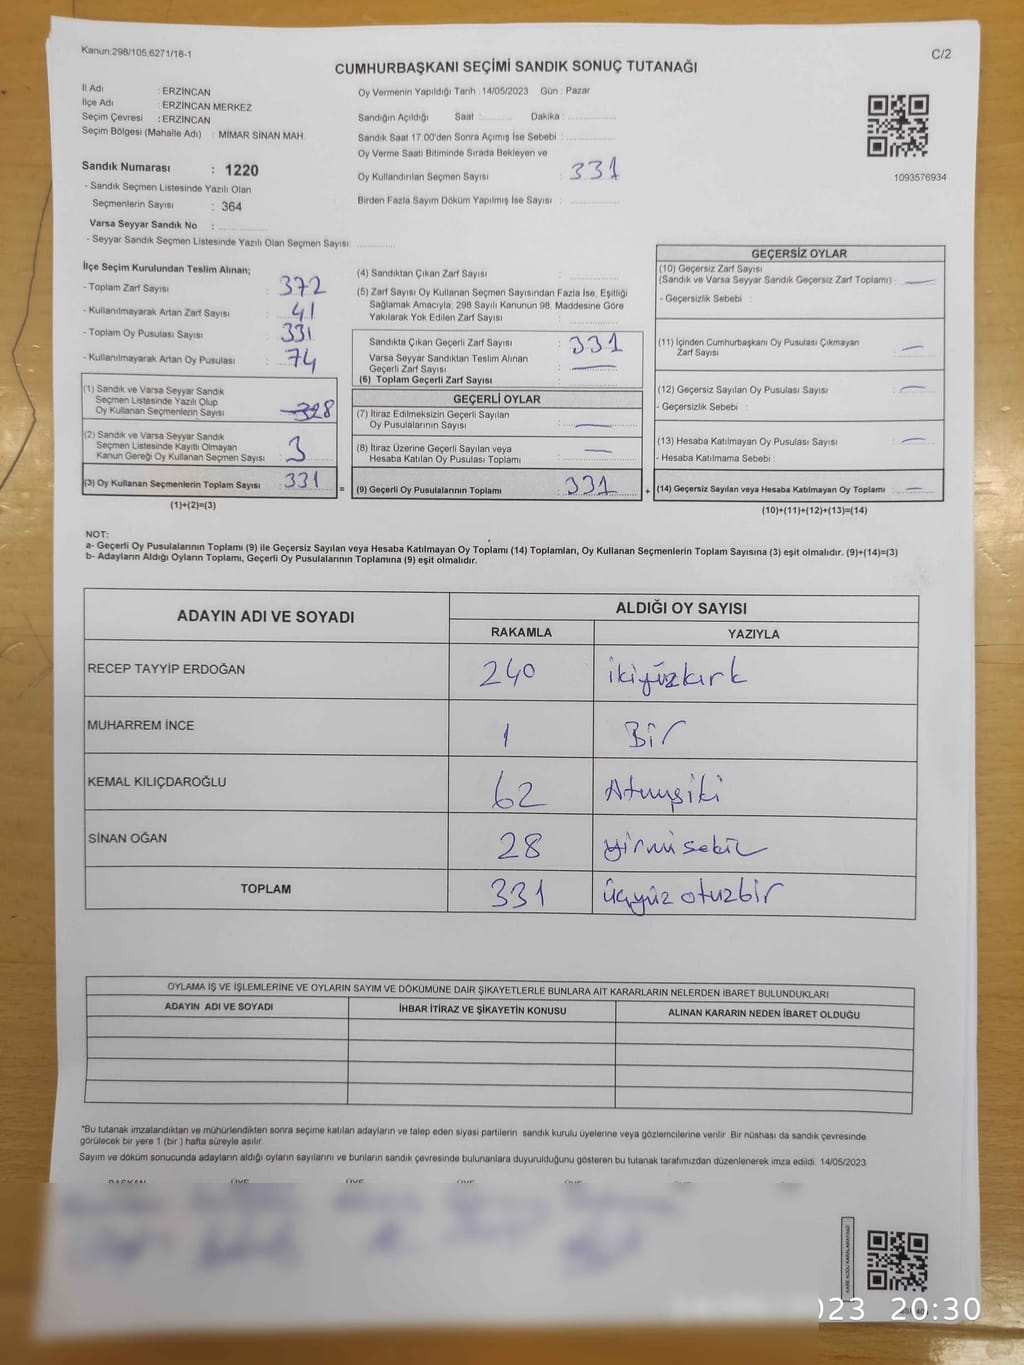 Kanun:298/105,6271/18-1
C/2
CUMHURBAŞKANI SEÇİMİ SANDIK SONUÇ TUTANAĞI
İl Adı : ERZİNCAN
İlçe Adı : ERZİNCAN MERKEZ
Seçim Çevresi : ERZİNCAN
Seçim Bölgesi (Mahalle Adı) : MİMAR SİNAN MAH.
Sandık Numarası : 1220
- Sandık Seçmen Listesinde Yazılı Olan
Seçmenlerin Sayısı : 364
Varsa Seyyar Sandık No :
- Seyyar Sandık Seçmen Listesinde Yazılı Olan Seçmen Sayısı:
Oy Vermenin Yapıldığı Tarih :14/05/2023 Gün : Pazar
Sandığın Açıldığı Saat : Dakika :
Sandık Saat 17:00'den Sonra Açımış İse Sebebi :
Oy Verme Saati Bitiminde Sırada Bekleyen ve
Oy Kullandırılan Seçmen Sayısı : 331
Birden Fazla Sayım Döküm Yapılmış İse Sayısı :
1093576934
İlçe Seçim Kurulundan Teslim Alınan;
- Toplam Zarf Sayısı : 372
- Kullanılmayarak Artan Zarf Sayısı : 41
- Toplam Oy Pusulası Sayısı : 331
- Kullanılmayarak Artan Oy Pusulası : 74
(1) Sandık ve Varsa Seyyar Sandık
Seçmen Listesinde Yazılı Olup
Oy Kullanan Seçmenlerin Sayısı : 328
(2) Sandık ve Varsa Seyyar Sandık
Seçmen Listesinde Kayıtlı Olmayan
Kanun Gereği Oy Kullanan Seçmen Sayısı : 3
(3) Oy Kullanan Seçmenlerin Toplam Sayısı : 331
(1)+(2)=(3)
(4) Sandıktan Çıkan Zarf Sayısı :
(5) Zarf Sayısı Oy Kullanan Seçmen Sayısından Fazla İse, Eşitliği
Sağlamak Amacıyla, 298 Sayılı Kanunun 98. Maddesine Göre
Yakılarak Yok Edilen Zarf Sayısı :
Sandıkta Çıkan Geçerli Zarf Sayısı : 331
Varsa Seyyar Sandıktan Teslim Alınan
Geçerli Zarf Sayısı : —
(6) Toplam Geçerli Zarf Sayısı :
GEÇERLİ OYLAR
(7) İtiraz Edilmeksizin Geçerli Sayılan
Oy Pusulalarının Sayısı : —
(8) İtiraz Üzerine Geçerli Sayılan veya
Hesaba Katılan Oy Pusulası Toplamı : —
= (9) Geçerli Oy Pusulalarının Toplamı : 331
GEÇERSİZ OYLAR
(10) Geçersiz Zarf Sayısı
(Sandık ve Varsa Seyyar Sandık Geçersiz Zarf Toplamı) : —
- Geçersizlik Sebebi :
(11) İçinden Cumhurbaşkanı Oy Pusulası Çıkmayan
Zarf Sayısı : —
(12) Geçersiz Sayılan Oy Pusulası Sayısı : —
- Geçersizlik Sebebi :
(13) Hesaba Katılmayan Oy Pusulası Sayısı : —
- Hesaba Katılmama Sebebi :
+ (14) Geçersiz Sayılan veya Hesaba Katılmayan Oy Toplamı : —
(10)+(11)+(12)+(13)=(14)
NOT:
a- Geçerli Oy Pusulalarının Toplamı (9) ile Geçersiz Sayılan veya Hesaba Katılmayan Oy Toplamı (14) Toplamları, Oy Kullanan Seçmenlerin Toplam Sayısına (3) eşit olmalıdır. (9)+(14)=(3)
b- Adayların Aldığı Oyların Toplamı, Geçerli Oy Pusulalarının Toplamına (9) eşit olmalıdır.
ADAYIN ADI VE SOYADI ALDIĞI OY SAYISI
RAKAMLA YAZIYLA
RECEP TAYYİP ERDOĞAN 240 ikiyüzkırk
MUHARREM İNCE 1 Bir
KEMAL KILIÇDAROĞLU 62 Atmışiki
SİNAN OĞAN 28 yirmisekiz
TOPLAM 331 üçyüz otuzbir
OYLAMA İŞ VE İŞLEMLERİNE VE OYLARIN SAYIM VE DÖKÜMÜNE DAİR ŞİKAYETLERLE BUNLARA AİT KARARLARIN NELERDEN İBARET BULUNDUKLARI
ADAYIN ADI VE SOYADI İHBAR İTİRAZ VE ŞİKAYETİN KONUSU ALINAN KARARIN NEDEN İBARET OLDUĞU
*Bu tutanak imzalandıktan ve mühürlendikten sonra seçime katılan adayların ve talep eden siyasi partilerin sandık kurulu üyelerine veya gözlemcilerine verilir. Bir nüshası da sandık çevresinde
görülecek bir yere 1 (bir ) hafta süreyle asılır.
Sayım ve döküm sonucunda adayların aldığı oyların sayılarını ve bunların sandık çevresinde bulunanlara duyurulduğunu gösteren bu tutanak tarafımızdan düzenlenerek imza edildi. 14/05/2023
BAŞKAN ÜYE ÜYE ÜYE ÜYE
20:30